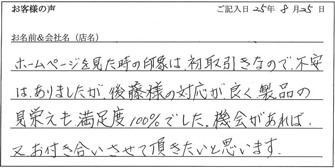 お客様の声 ご記入日 25年 8月 25日
お名前&会社名（店名）
ホームページを見た時の印象は、初取引きなので、不安
は、ありましたが、後藤様の対応が良く製品の
見栄えも満足度100%でした。機会があれば、
又お付き合いさせて頂きたいと思います。